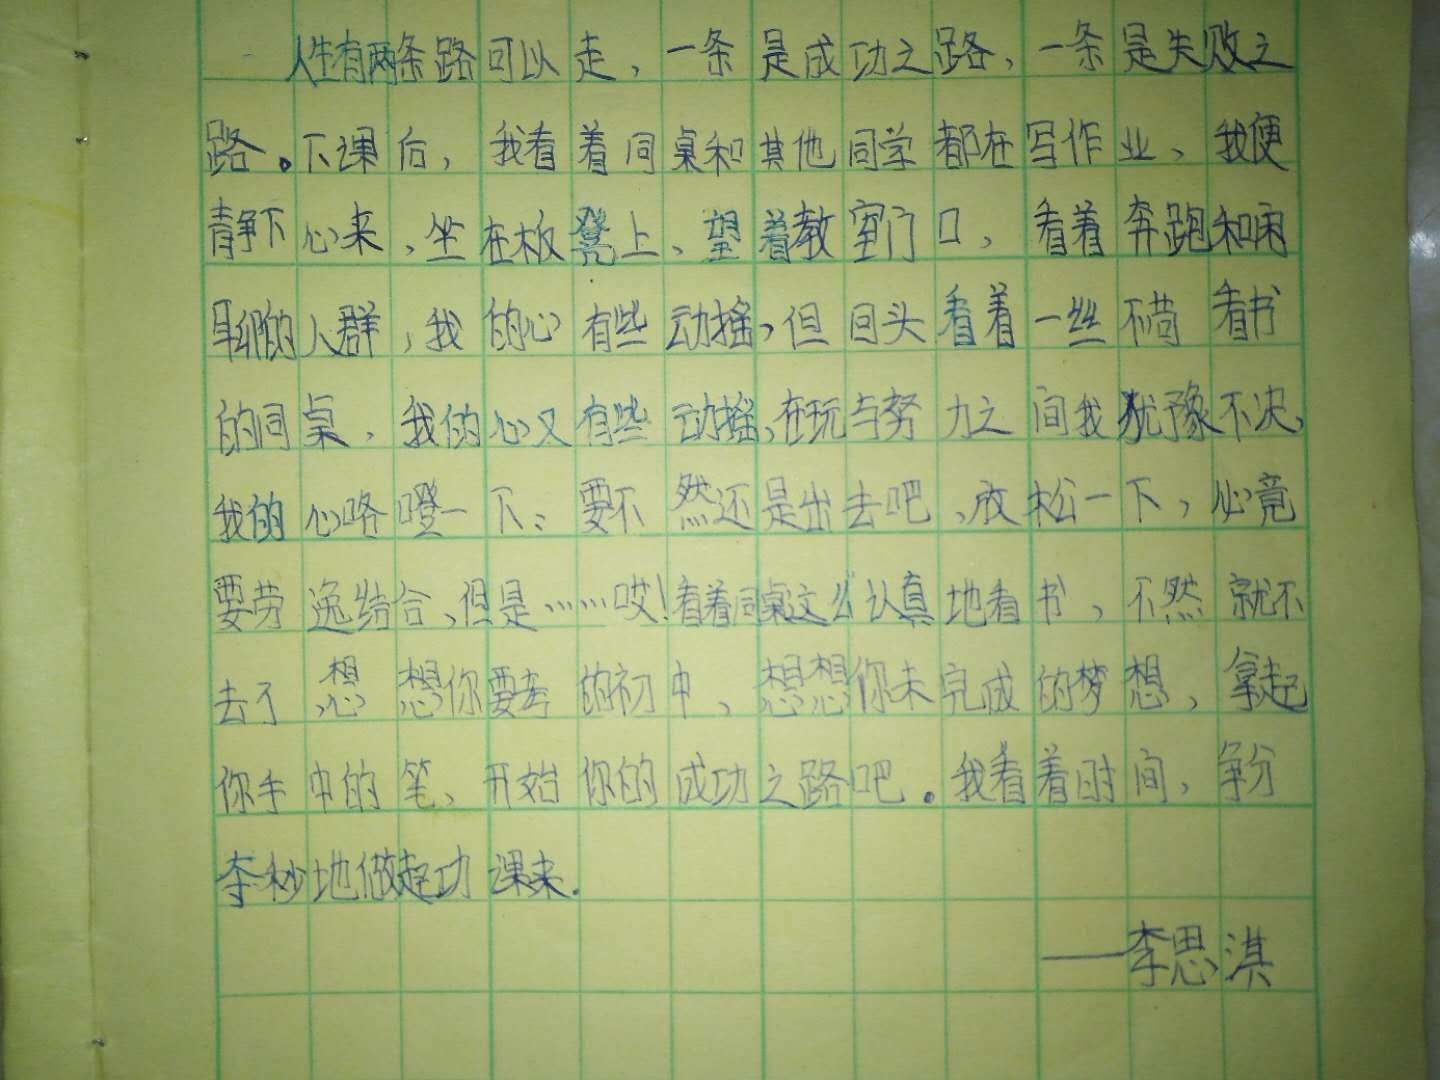 人生有两条路可以走，一条是成功之路，一条是失败之
路。下课后，我看着同桌和其他同学都在写作业、我便
静下心来，坐在板凳上、望着教室门口，看着奔跑和闲
聊的人群，我的心有些动摇，但回头看着一丝不苟看书
的同桌，我的心又有些动摇，在玩与努力之间我犹豫不决、
我的心咯噔一下：要不然还是出去吧、放松一下，必竟
要劳逸结合，但是……哎！看着同桌这么认真地看书，不然就不
去了，想想你要考的初中、想想你未完成的梦想，拿起
你手中的笔、开始你的成功之路吧。我看着时间，争分
夺秒地做起功课来.
——李思淇